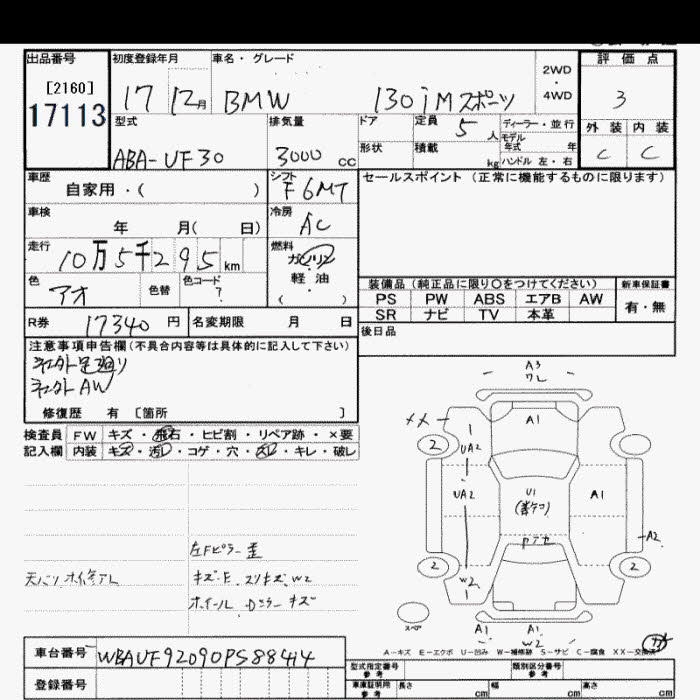 出品番号 初度登録年月 車名・グレード 評価点
[2160] 17113
17 12月 BMW 130iMスポーツ 2WD・4WD 3
型式 排気量 ドア 定員 5人 ディーラー・並行 外装 内装
モデル年式 年
ABA-UF30 3000cc 形状 積載 kg ハンドル 左・右 C C
車歴 シフト セールスポイント(正常に機能するものに限ります)
自家用・( ) F6MT
車検 冷房
年 月( 日) AC
走行 燃料
10万5千295km ガソリン
軽・油
( )
色 色替 色コード
アオ ?
装備品(純正品に限り○をつけてください) 新車保証書
PS PW ABS エアB AW 有・無
SR ナビ TV 本革
R券 17340円 名変期限 月 日 後日品
注意事項申告欄(不具合内容等は具体的に記入して下さい)
シャガイ足廻り
シャガイAW
修復歴 有 [箇所 ]
検査員 FW キズ・飛石・ヒビ割・リペア跡・×要
記入欄 内装 キズ・汚レ・コゲ・穴・スレ・キレ・破レ
左Fピラー歪
キズ・E.スリキズ.W2
ホイール
キズ
A3
ワレ
A1
XX
1
2
UA2
UA2
U1
A1
A2
2
W2
2
スペア
A1 A1
W2
A-キズ E-エクボ U-凹み W-補修跡 S-サビ C-腐食 XX-交換済
車台番号 WBAUF92090PS88414
登録番号
型式指定番号 参考 類別区分番号
車庫証明用 参考 長さ cm 幅 cm 高さ cm